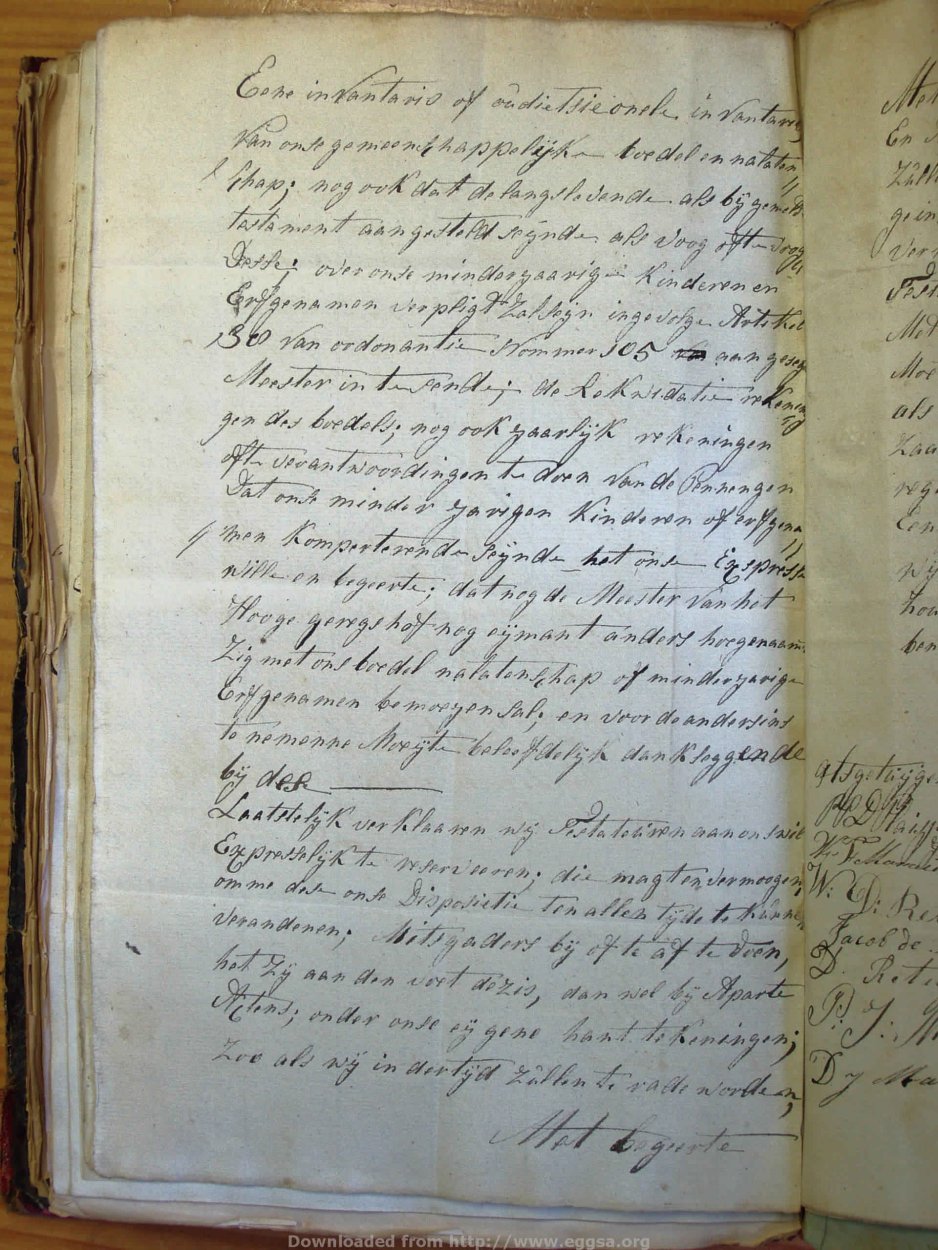 Eene invantaris of oudietsieonele invantaris
Van onse gemeenschappelijke boedel en nalaten
schap; nog ook dat de langslevende als bij gemelt
tastament aangesteld seijnde als voog ofte voog
Desse; over onse minderyaarige Kinderen en
Erfgenamen verpligt Zal seijn ingevolge Artikel
30 van ordonantie Nommer 105 aan geseg
Meester in te sende; de Lekwidatie rekenin
gen des boedels; nog ook yaarlijk rekeningen
ofte verantwoordingen te doen van de Pennengen
Dat onse minder yarigen Kinderen of erfgena
men Komperterende seijnde het onse Expresse
wille en begeerte; dat nog de Meester van het
Hooge geregshof nog eijmant anders hoegenaam
Zig met ons boedel nalatenschap of minderyarige
Erfgenamen bemoeyen sal; en voor de andersins
te nemenne Moeijte beleefdelijk dankseggende
bij dese
Laatstelijk verklaaren wij Testateuren aan ons wil
Expresselijk te reserveeren; die magt en vermoogen
omme dese onse Disposietie ten allen tijde te kunnen
veranderen; Mitsgaders bij of te af te doen,
het Zij aan den voet dezis, dan wel bij Aparte
Actens; onder onse eijgene hant tekeningen;
Zoo als wij in dertijd Zullen te rade worden,
Met begeerte
Met
En
gein
Met
als
wij
ben
Als getuijge
Jacob de
Downloaded from http://www.eggsa.org